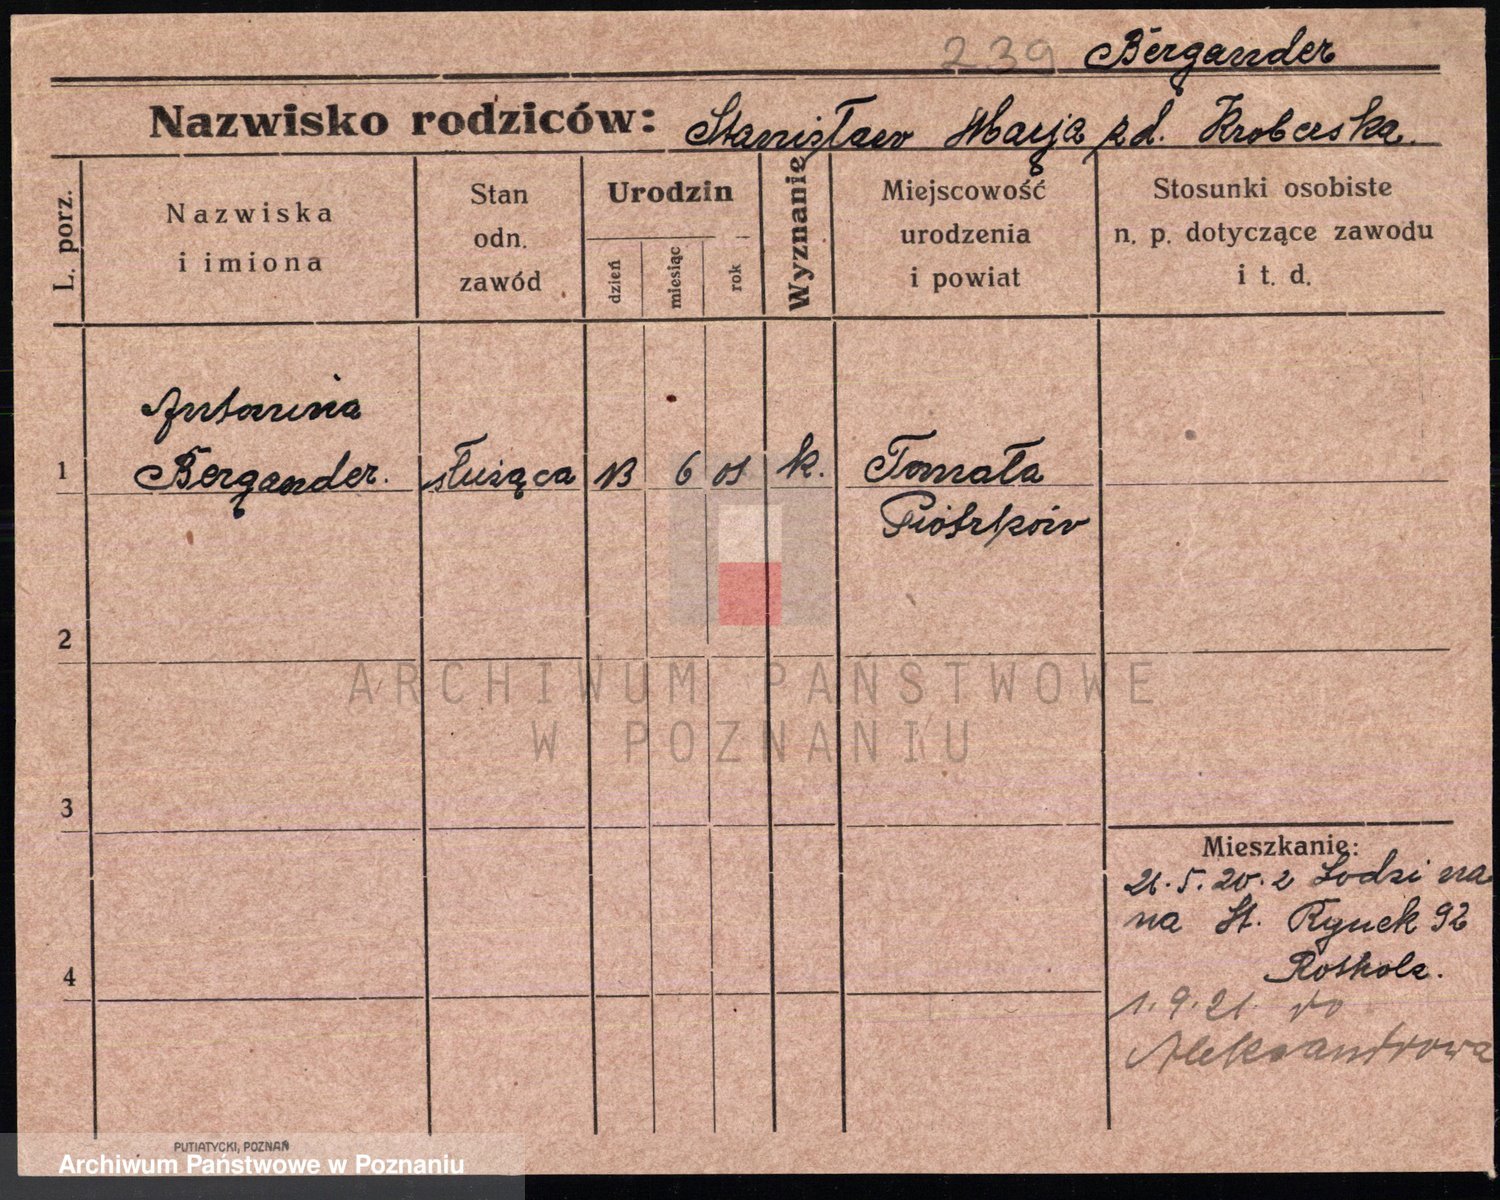 239 Bergander
Nazwisko rodziców: Stanisław Marja zd. Kroberska.
L. porz.
Nazwiska
i imiona
Stan
odn.
zawód
Urodzin
dzień
miesiąc
rok
Wyznanie
Miejscowość
urodzenia
i powiat
Stosunki osobiste
n. p. dotyczące zawodu
i t. d.
Antonina
1 Bergander. służąca 13 6 01 k. Tomała
Piotrków
2
ARCHIWUM PAŃSTWOWE
W POZNANIU
3
Mieszkanie:
21.5.20. z Łodzi na
na St. Rynek 92
Rotholz.
4
1.9.21. do
Aleksandrowa
PUTIATYCKI, POZNAŃ
Archiwum Państwowe w Poznaniu